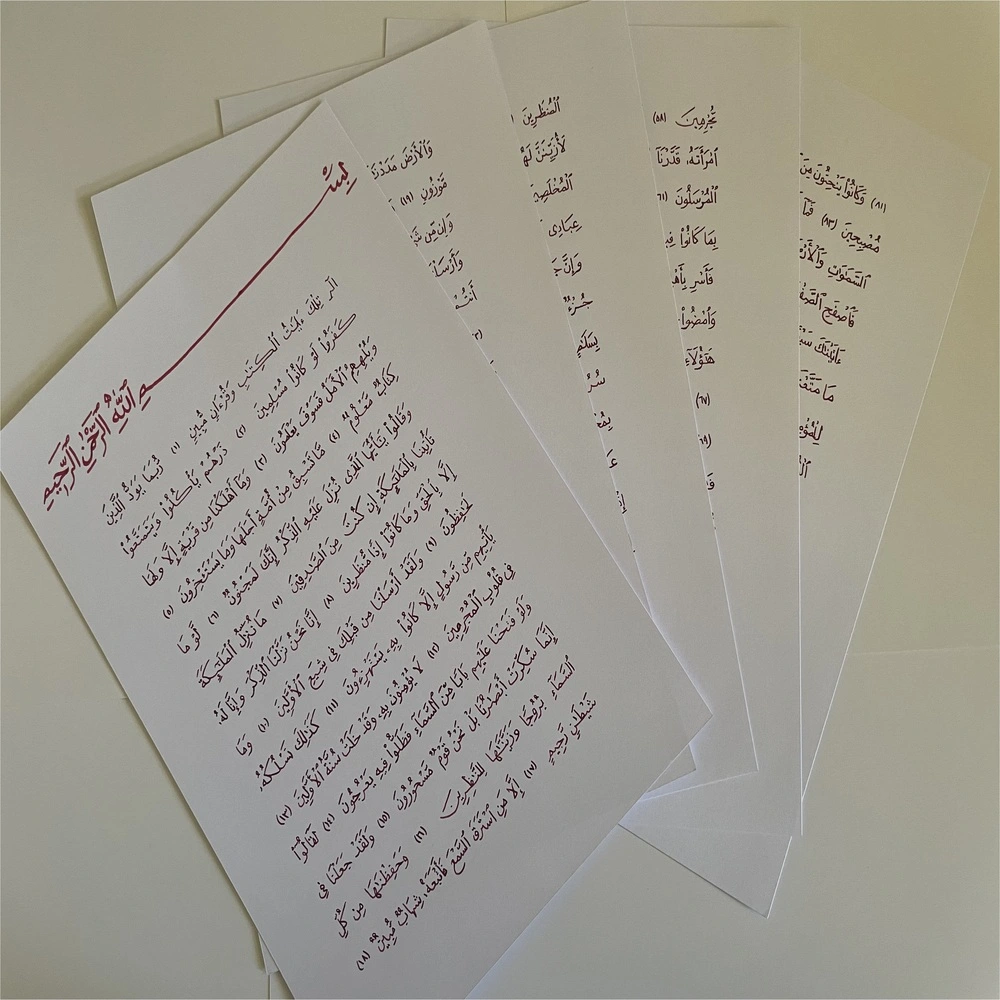 بِسْمِ ٱللَّهِ ٱلرَّحْمَٰنِ ٱلرَّحِيمِ
الٓر تِلْكَ ءَايَٰتُ ٱلْكِتَٰبِ وَقُرْءَانٍ مُّبِينٍ (١) رُّبَمَا يَوَدُّ ٱلَّذِينَ
كَفَرُوا۟ لَوْ كَانُوا۟ مُسْلِمِينَ (٢) ذَرْهُمْ يَأْكُلُوا۟ وَيَتَمَتَّعُوا۟
وَيُلْهِهِمُ ٱلْأَمَلُ فَسَوْفَ يَعْلَمُونَ (٣) وَمَآ أَهْلَكْنَا مِن قَرْيَةٍ إِلَّا وَلَهَا
كِتَابٌ مَّعْلُومٌ (٤) مَّا تَسْبِقُ مِنْ أُمَّةٍ أَجَلَهَا وَمَا يَسْتَـْٔخِرُونَ (٥)
وَقَالُوا۟ يَٰٓأَيُّهَا ٱلَّذِى نُزِّلَ عَلَيْهِ ٱلذِّكْرُ إِنَّكَ لَمَجْنُونٌ (٦) لَّوْ مَا
تَأْتِينَا بِٱلْمَلَٰٓئِكَةِ إِن كُنتَ مِنَ ٱلصَّٰدِقِينَ (٧) مَا نُنَزِّلُ ٱلْمَلَٰٓئِكَةَ
إِلَّا بِٱلْحَقِّ وَمَا كَانُوٓا۟ إِذًا مُّنظَرِينَ (٨) إِنَّا نَحْنُ نَزَّلْنَا ٱلذِّكْرَ وَإِنَّا لَهُۥ
لَحَٰفِظُونَ (٩) وَلَقَدْ أَرْسَلْنَا مِن قَبْلِكَ فِى شِيَعِ ٱلْأَوَّلِينَ (١٠) وَمَا
يَأْتِيهِم مِّن رَّسُولٍ إِلَّا كَانُوا۟ بِهِۦ يَسْتَهْزِءُونَ (١١) كَذَٰلِكَ نَسْلُكُهُۥ
فِى قُلُوبِ ٱلْمُجْرِمِينَ (١٢) لَا يُؤْمِنُونَ بِهِۦ وَقَدْ خَلَتْ سُنَّةُ ٱلْأَوَّلِينَ (١٣)
وَلَوْ فَتَحْنَا عَلَيْهِم بَابًا مِّنَ ٱلسَّمَآءِ فَظَلُّوا۟ فِيهِ يَعْرُجُونَ (١٤) لَقَالُوٓا۟
إِنَّمَا سُكِّرَتْ أَبْصَٰرُنَا بَلْ نَحْنُ قَوْمٌ مَّسْحُورُونَ (١٥) وَلَقَدْ جَعَلْنَا فِى
ٱلسَّمَآءِ بُرُوجًا وَزَيَّنَّٰهَا لِلنَّٰظِرِينَ (١٦) وَحَفِظْنَٰهَا مِن كُلِّ
شَيْطَٰنٍ رَّجِيمٍ (١٧) إِلَّا مَنِ ٱسْتَرَقَ ٱلسَّمْعَ فَأَتْبَعَهُۥ شِهَابٌ مُّبِينٌ (١٨)
وَٱلْأَرْضَ مَدَدْنَٰ
مَّوْزُونٍ (١٩)
وَإِن مِّن
وَأَرْسَلْنَا
أَنتُمْ
ٱلْمُنظَرِينَ
لَأُزَيِّنَنَّ لَهُ
ٱلْمُخْلَصِي
عِبَادِى
وَإِنَّ
جُزْءٌ
بِسَلَٰمٍ
سُرُ
مُّجْرِمِينَ (٥٨)
ٱمْرَأَتَهُۥ قَدَّرْنَآ
ٱلْمُرْسَلُونَ (٦١
بِمَا كَانُوا۟ فِي
فَأَسْرِ بِأَهْ
وَٱمْضُوا۟
هَٰٓؤُلَآءِ
(٦٧)
٦٩)
(٨١) وَكَانُوا۟ يَنْحِتُونَ مِنَ
مُصْبِحِينَ (٨٣) فَمَآ
ٱلسَّمَٰوَٰتِ وَٱلْأَرْ
فَٱصْفَحِ ٱلصَّفْ
ءَاتَيْنَٰكَ سَبْ
مَا مَتَّعْنَ
لِلْمُؤْمِ